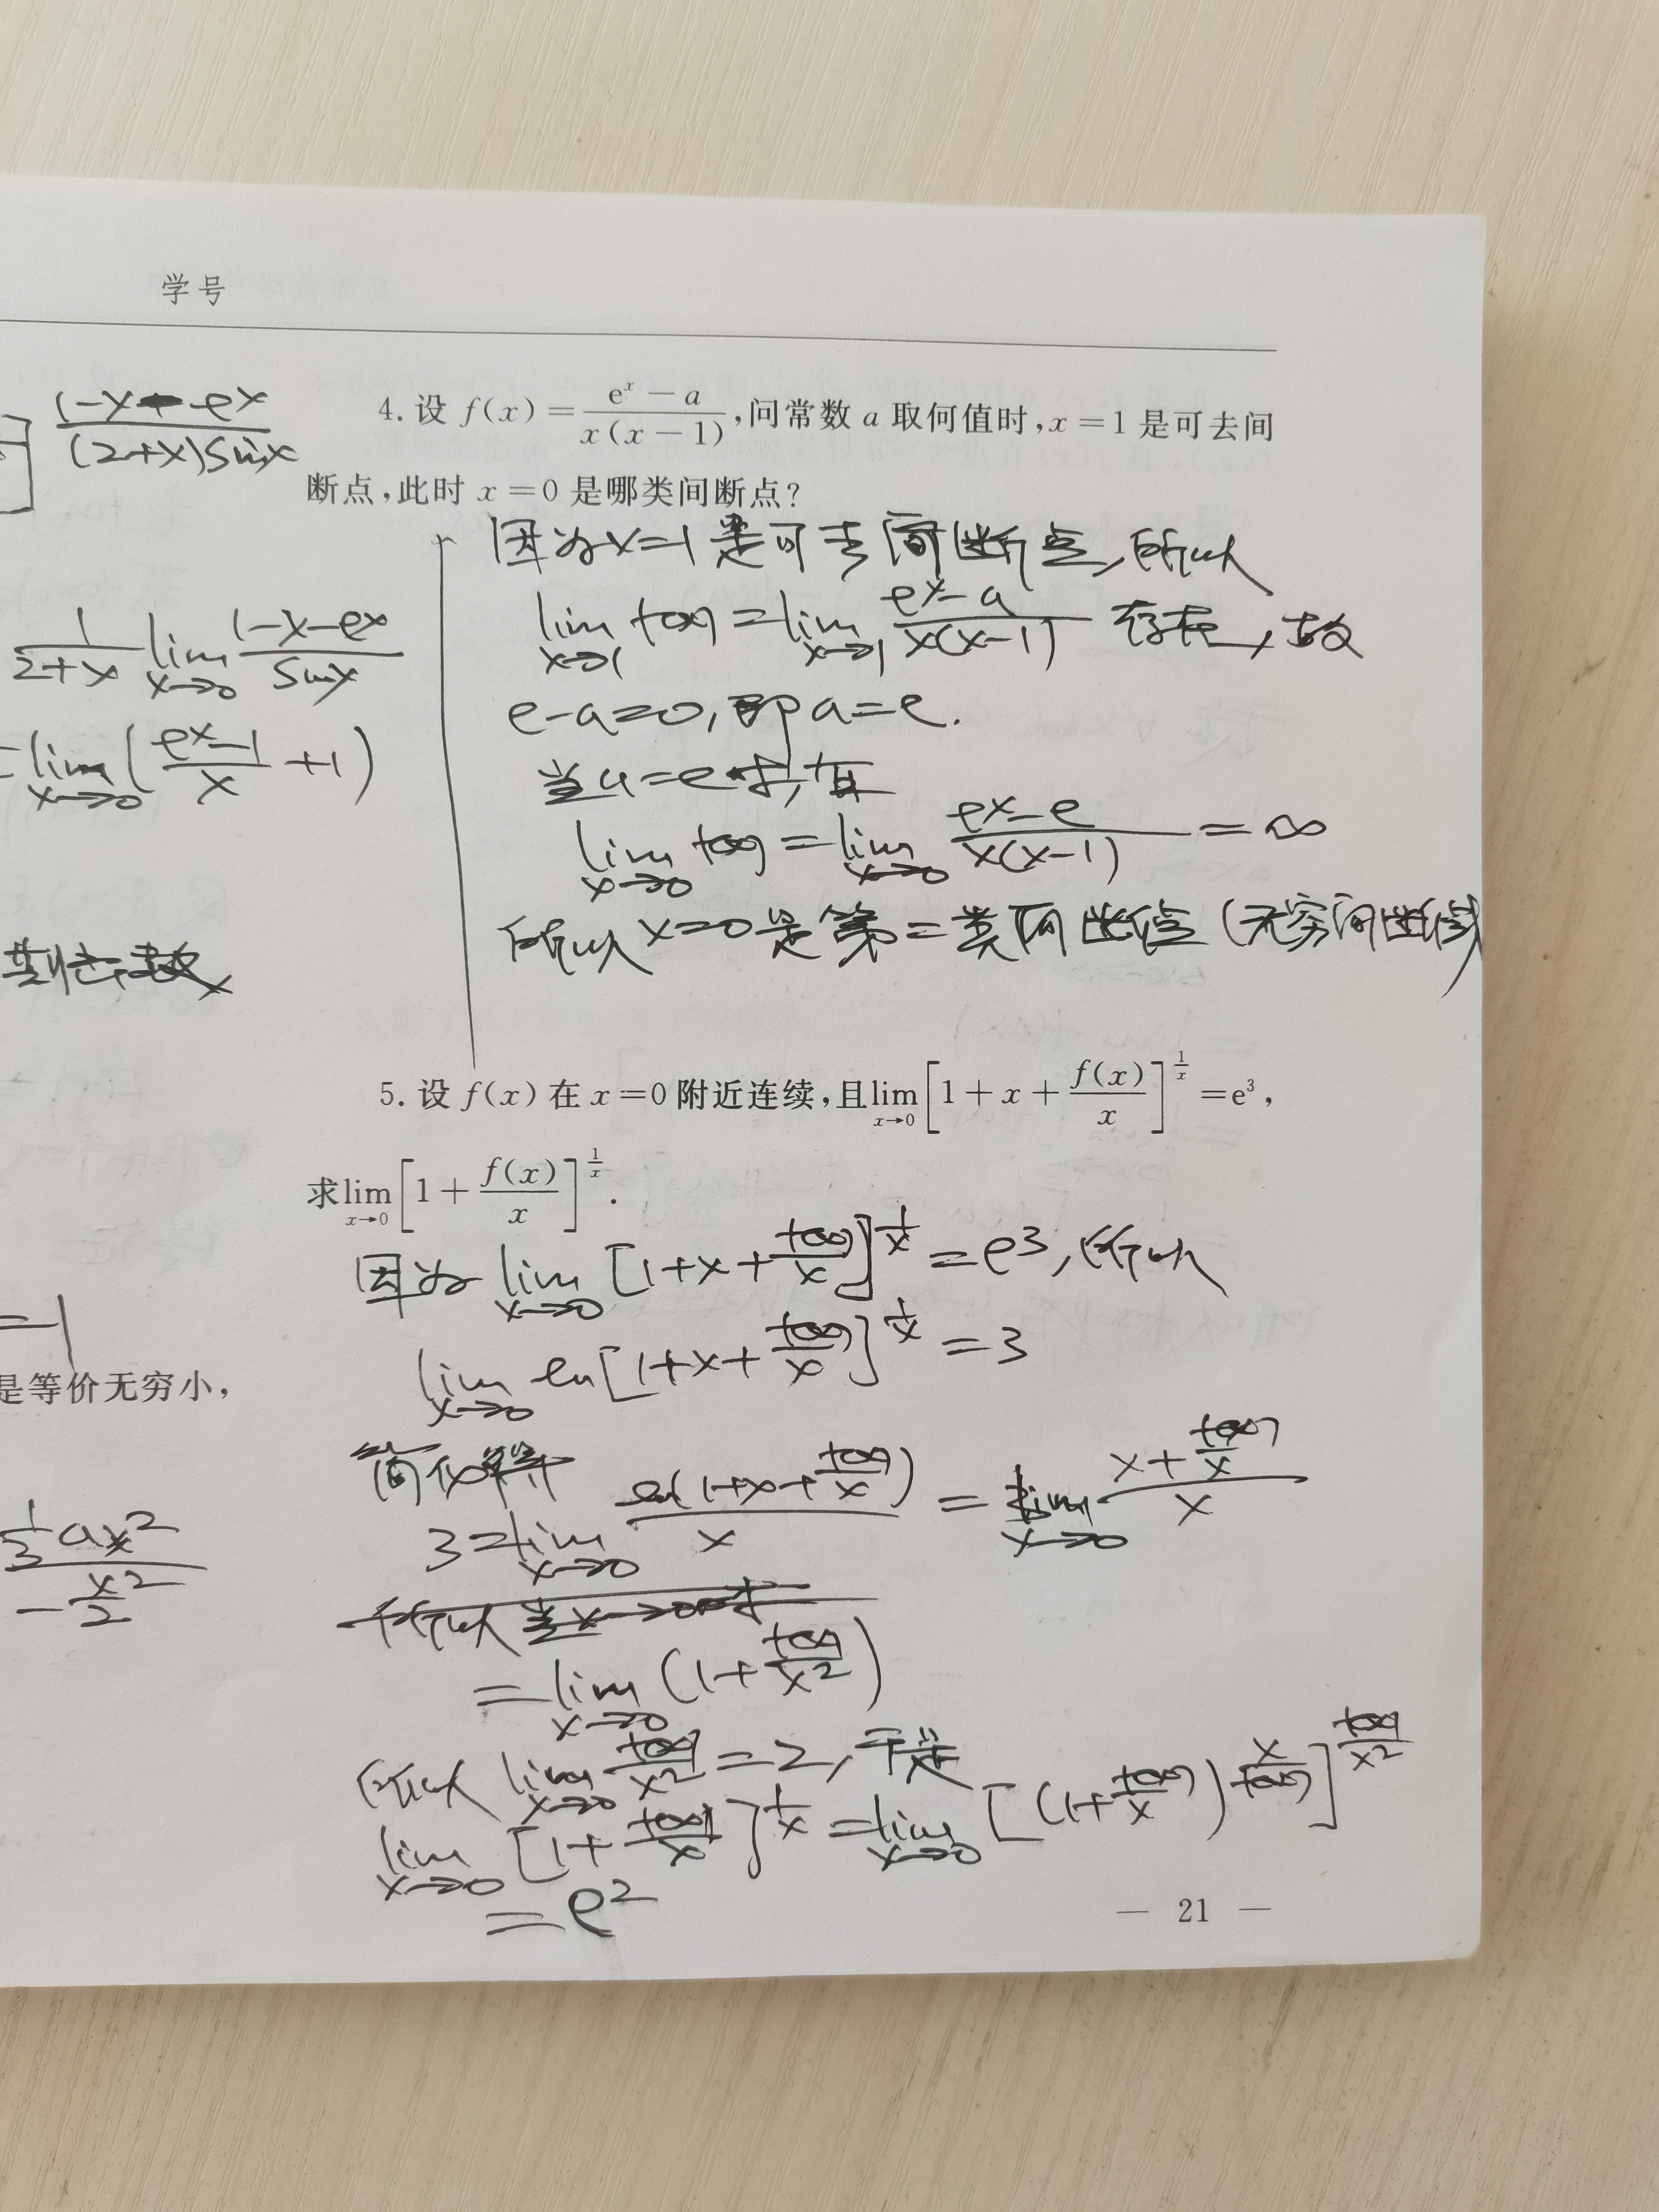 学号
1-x-e^x
(2+x)sinx
1/(2+x) lim x→0 (1-x-e^x)/sinx
=lim x→0 ((e^x-1)/x +1)
=1
是等价无穷小,
1/3 ax²
-x²/2
4. 设 f(x)=(e^x-a)/(x(x-1)),问常数 a 取何值时,x=1 是可去间
断点,此时 x=0 是哪类间断点?
因为x=1是可去间断点,所以
lim x→1 f(x)=lim x→1 (e^x-a)/(x(x-1)) 存在,故
e-a=0,即a=e.
当a=e时,有
lim x→0 f(x)=lim x→0 (e^x-e)/(x(x-1))=∞
所以x=0是第二类间断点(无穷间断点)
5. 设 f(x) 在 x=0 附近连续,且lim x→0 [1+x+f(x)/x]^(1/x)=e³,
求lim x→0 [1+f(x)/x]^(1/x).
因为 lim x→0 [1+x+f(x)/x]^(1/x)=e³,所以
lim x→0 ln[1+x+f(x)/x]^(1/x)=3
简化得
3=lim x→0 ln(1+x+f(x)/x)/x=lim x→0 (x+f(x)/x)/x
所以当x→0时
=lim x→0 (1+f(x)/x²)
所以 lim x→0 f(x)/x²=2,于是
lim x→0 [1+f(x)/x]^(1/x)=lim x→0 [(1+f(x)/x)^(x/f(x))]^(f(x)/x²)
=e²
— 21 —